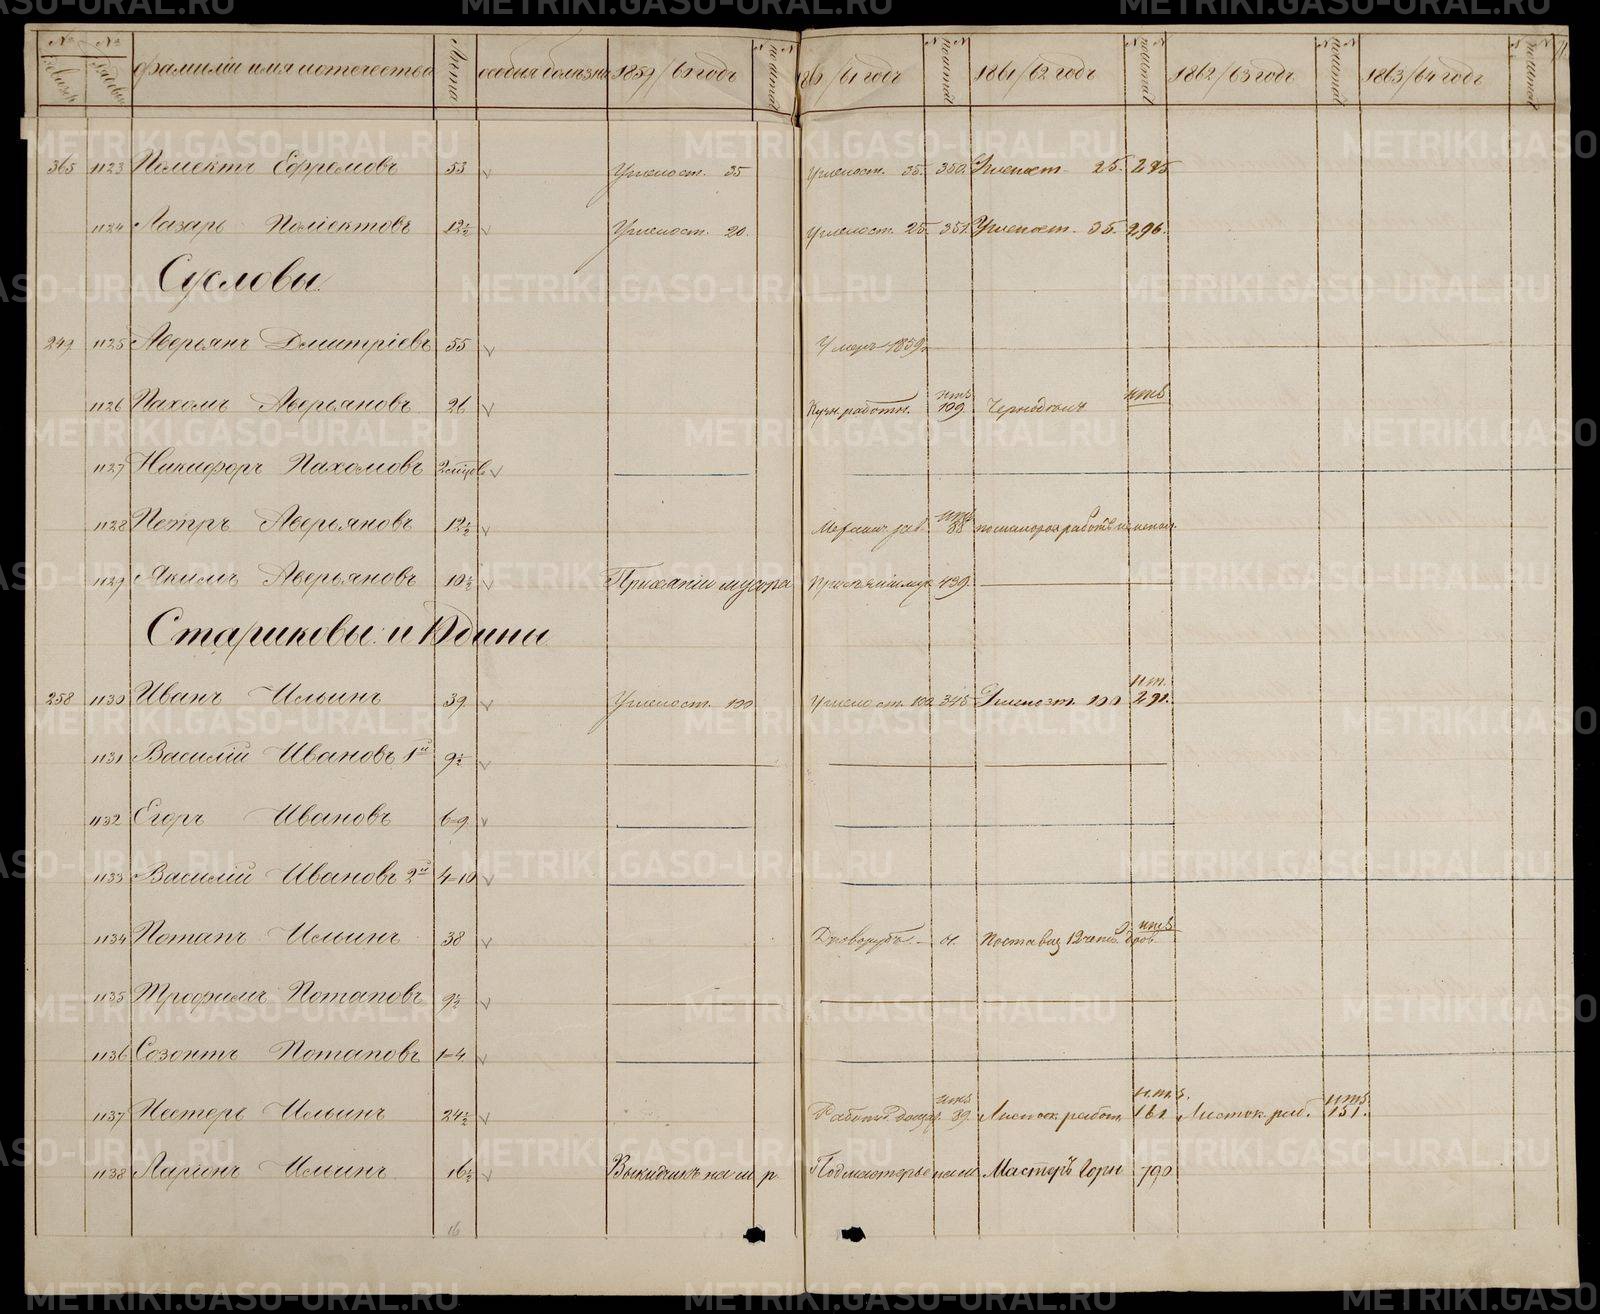 № ревизск № рядовые фамилiи имя и отечество Лѣта особыя болѣзни 1859/60 годъ № по штат 1860/61 годъ № по штат 1861/62 годъ № по штат 1862/63 годъ № по штат 1863/64 годъ № по штат
365 1123 Полiектъ Ефремовъ 53 Углепост. 35 Углепост. 35. 350. Углепост 25. 295
1124 Лазарь Полiектовъ 12½ Углепост. 20. Углепост. 25. 351. Углепост. 35. 296.
Сусловы.
249 1125 Аверьянъ Дмитрiевъ 55 Умеръ 1859
1126 Пахомъ Аверьяновъ 26 Кузн. работн. штѣ 109. Чернодѣлъ штѣ
1127 Никифоръ Пахомовъ
1128 Петръ Аверьяновъ 12½ Механич. зав. штѣ 88
1129 Акимъ Аверьяновъ 10½ 439.
Стариковы и Юдины
258 1130 Иванъ Ильинъ 39 Углепост. 100 Углепост. 100 345 Углепост. 100 291.
1131 Василiй Ивановъ 1й 9½
1132 Егоръ Ивановъ 6=9
1133 Василiй Ивановъ 2й 4=10
1134 Потапъ Ильинъ 38 Дроворубъ Поставщ 12 четв. дров штѣ
1135 Трофимъ Потаповъ 9½
1136 Созонтъ Потаповъ 1=4
1137 Нестеръ Ильинъ 24½ штѣ 89. Листок. работ. 161 Листок. раб. штѣ 151.
1138 Ларiонъ Ильинъ 16½ Подмастерье Мастеръ Горн 790
16
METRIKI.GASO-URAL.RU